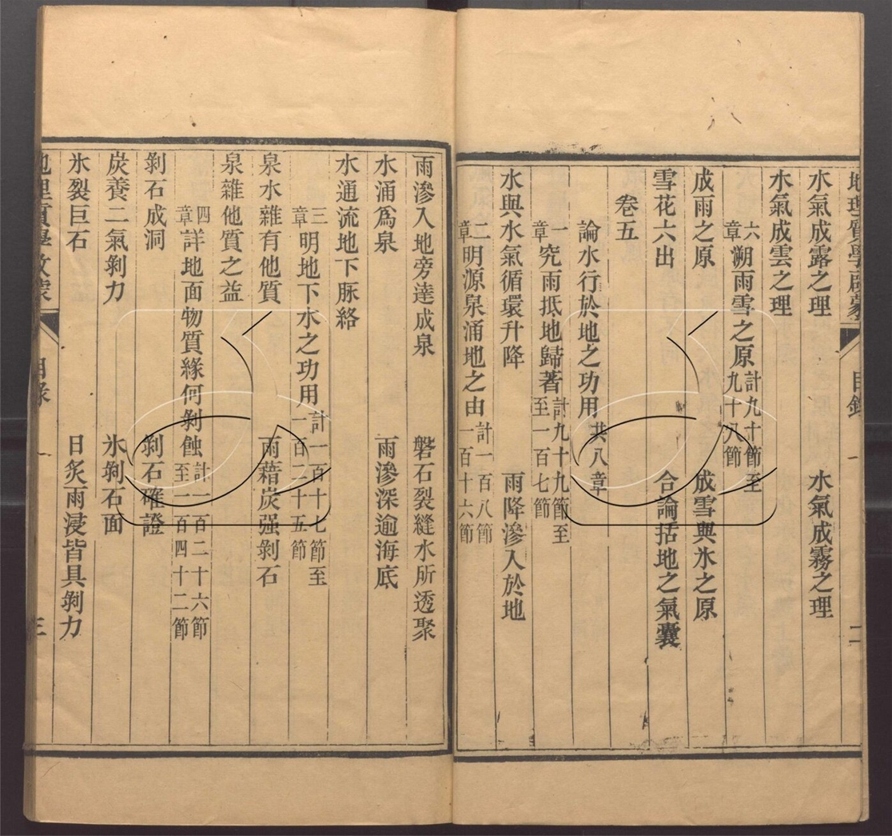 地理質學啟蒙 目錄 二
水氣成露之理 水氣成霧之理
水氣成雲之理
六章 溯雨雪之原 計九十節至九十八節
成雨之原 成雪與氷之原
雪花六出 合論括地之氣囊
卷五
論水行於地之功用 共八章
一章 究雨抵地歸著 計九十九節至一百七節
水與水氣循環升降 雨降滲入於地
二章 明源泉涌地之由 計一百八節一百十六節
雨滲入地旁達成泉 磐石裂縫水所透聚
水涌爲泉 雨滲深逾海底
水通流地下脉絡
三章 明地下水之功用 計一百十七節至一百二十五節
泉水雜有他質 雨藉炭强剝石
泉雜他質之益
四章 詳地面物質緣何剝蝕 計一百二十六節至一百四十二節
剝石成洞 剝石確證
炭養二氣剝力 氷剝石面
氷裂巨石 日炙雨浸皆具剝力
地理質學啟蒙 目錄 三